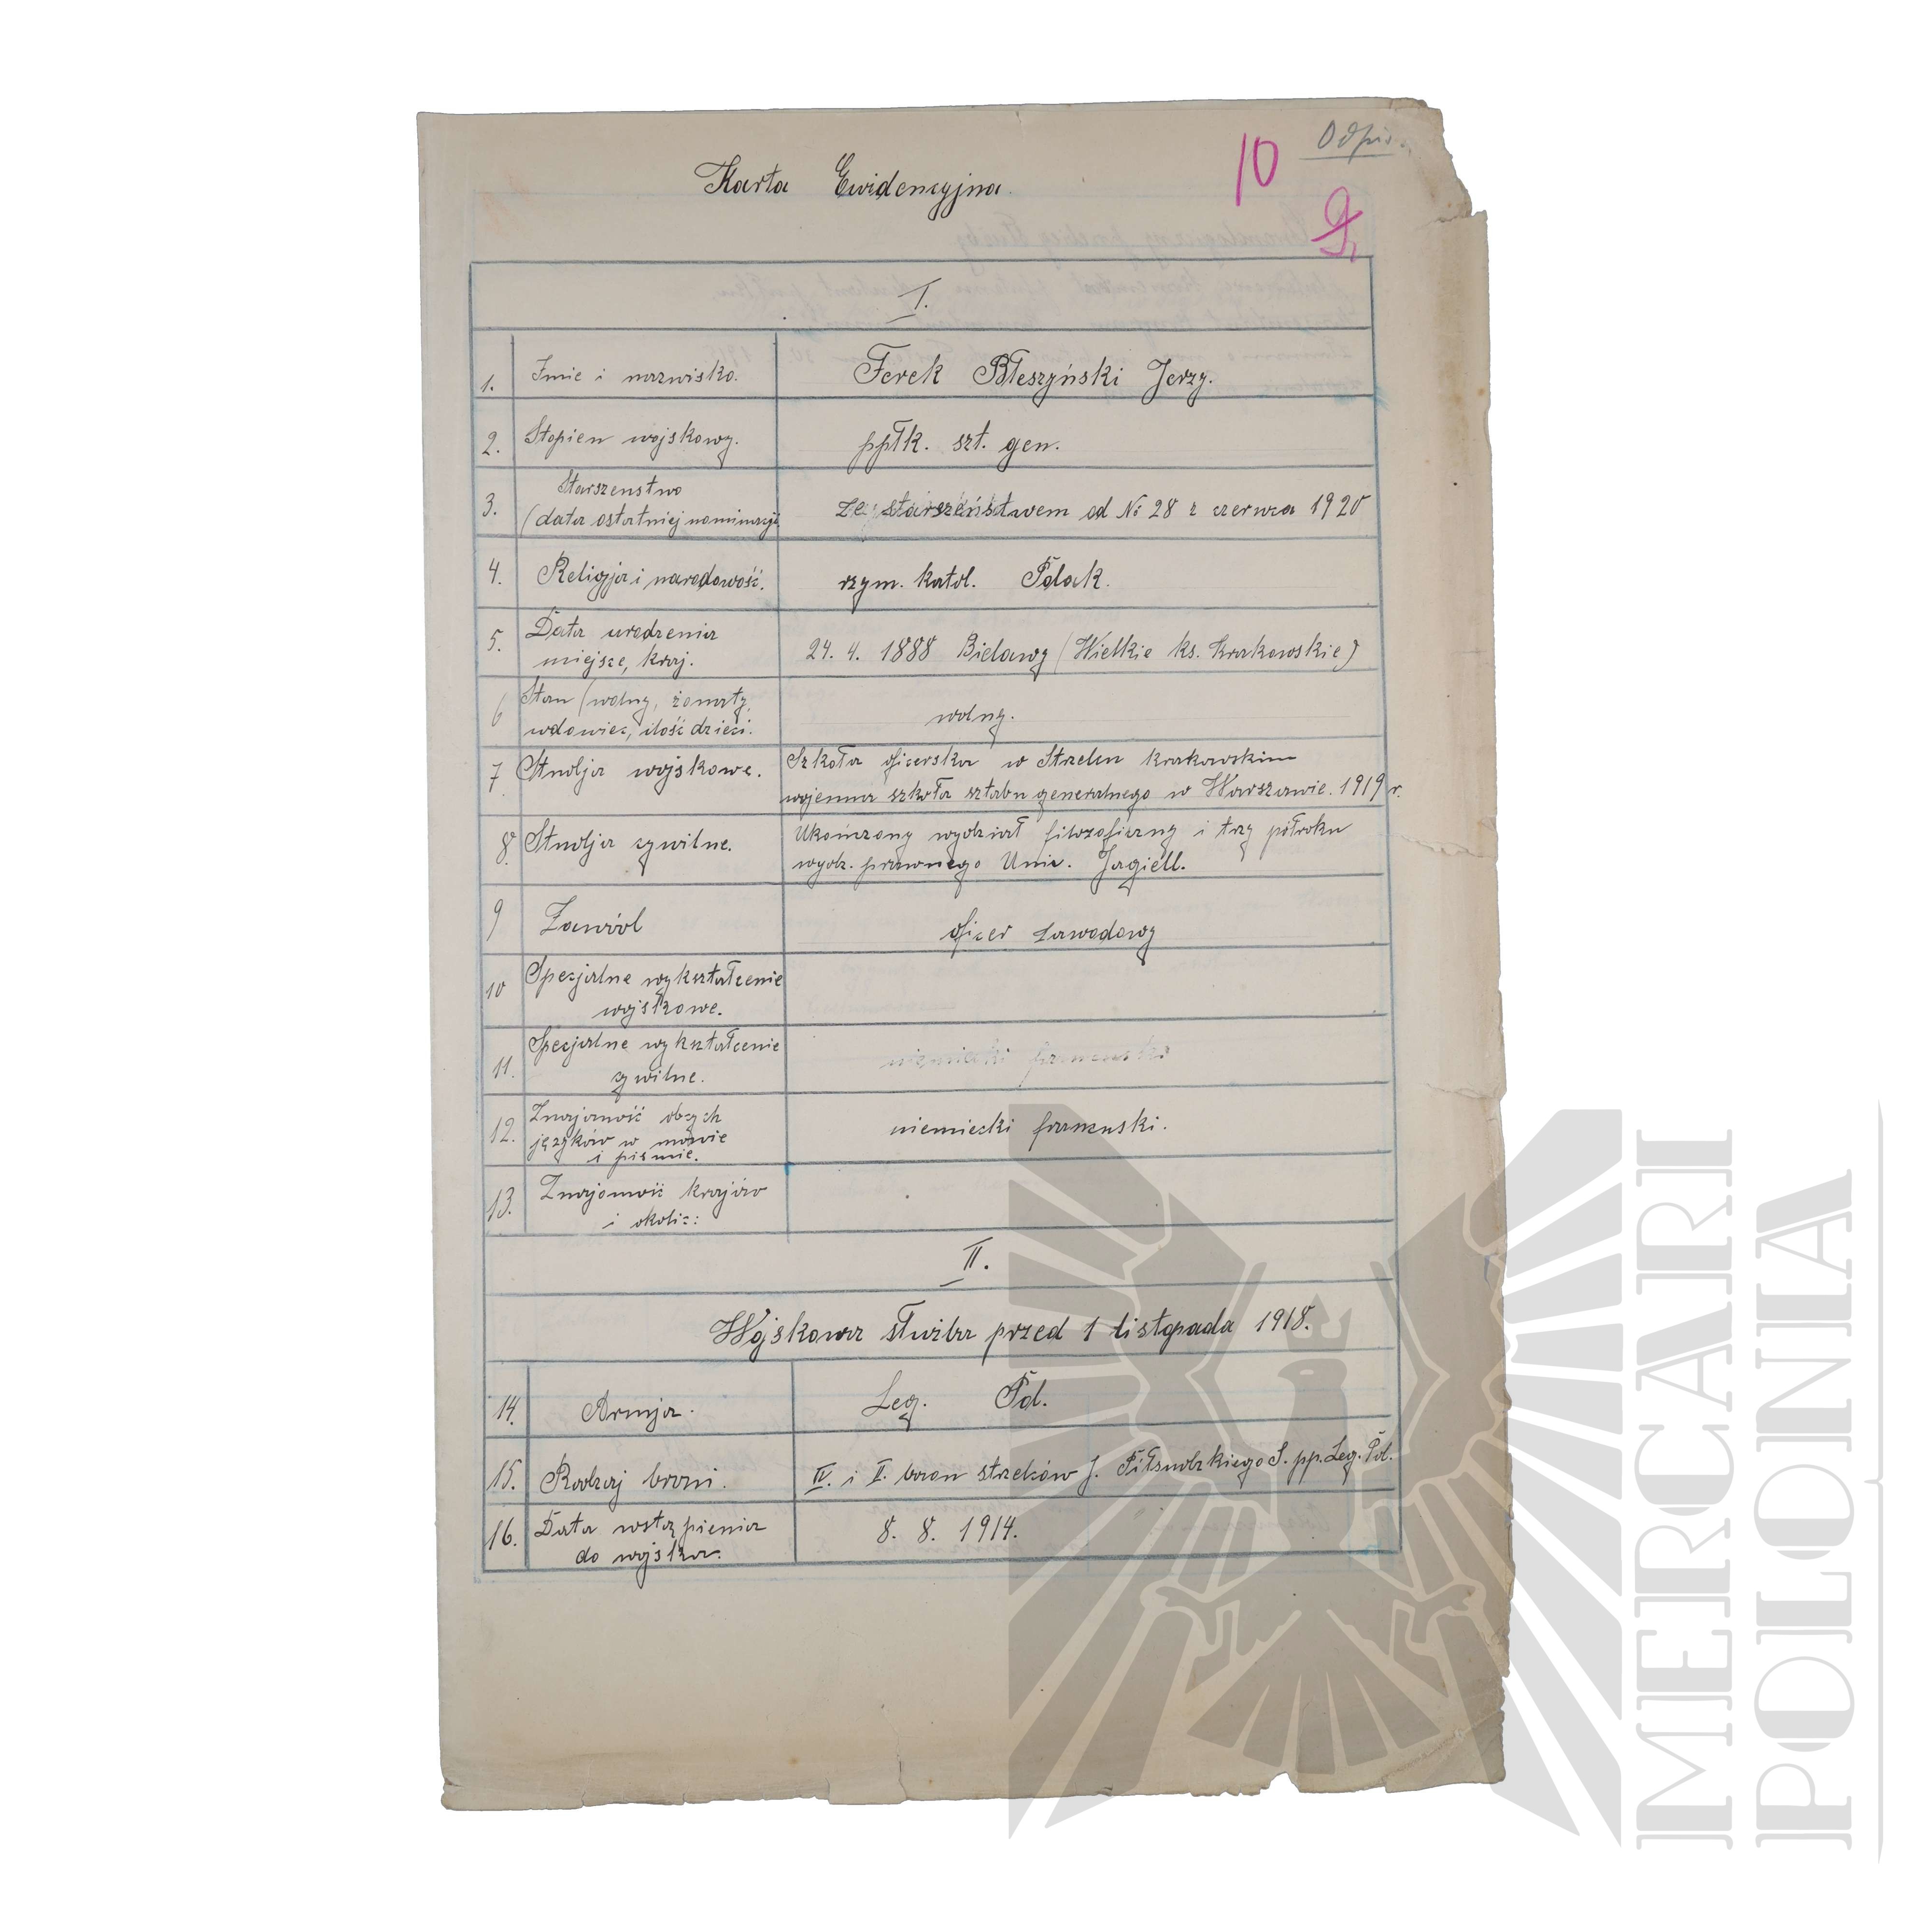 Odpis
10
Karta Ewidencyjna.
I.
1. Imie i nazwisko. Ferek Błeszyński Jerzy.
2. Stopien wojskowy. ppłk. szt. gen.
3. Starszenstwo
(data ostatniej nominacji ze starszeństwem od No 28 z czerwca 1920
4. Religja i narodowość. rzym. katol. Polak.
5. Data urodzenia
miejsce, kraj. 24. 4. 1888 Bielawy (Wielkie ks. Krakowskie)
6 Stan (wolny, żonaty,
wdowiec, ilość dzieci. wolny.
7 Studja wojskowe. Szkoła oficerska w Strzelcu krakowskim
wojenna szkoła sztabu generalnego w Warszawie. 1919 r.
8. Studja cywilne. Ukończony wydział filozoficzny i trzy półroku
wydz. prawnego Uniw. Jagiell.
9 Zawód oficer zawodowy
10 Specjalne wykształcenie
wojskowe.
11. Specjalne wykształcenie
cywilne. niemiecki francuski
12. Znajomość obcych
języków w mowie
i pismie. niemiecki francuski.
13. Znajomość krajów
i okolic:
II.
Wojskowa służba przed 1 listopada 1918.
14. Armja. Leg. Pol.
15. Rodzaj broni. IV. i I. baon strzelców J. Piłsudzkiego 5. pp. Leg. Pol.
16. Data wstąpienia
do wojska. 8. 8. 1914.
MERCARI
POLONIA